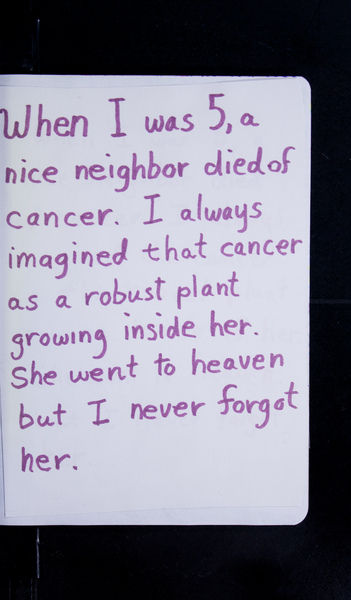 When I was 5, a
nice neighbor died of
cancer. I always
imagined that cancer
as a robust plant
growing inside her.
She went to heaven
but I never forgot
her.